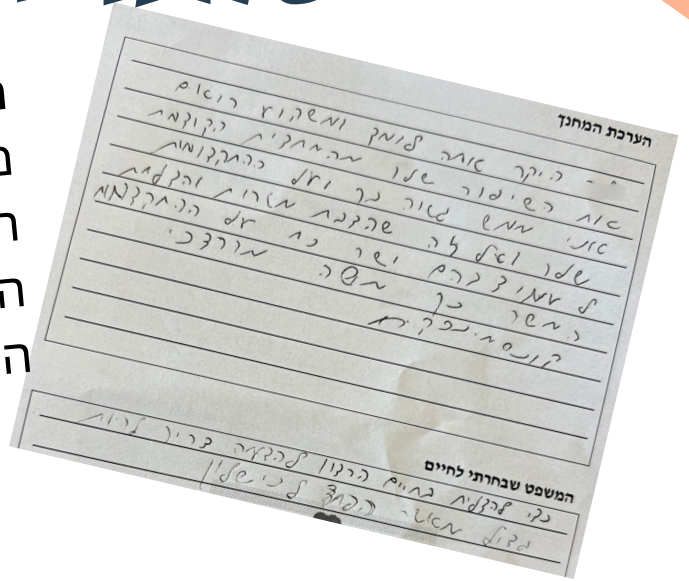 הערכת המחנך
היקר אתה לומד ומשקיע רואים
את השיפור שלך מהמחצית הקודמת
אני ממש גאה בך ועל ההתקדמות
שלך ועל זה שהצבת מטרות והצלחת
לעמוד בהם ישר כח על ההתקדמות
המשך כך משה מרדכי
המשפט שבחרתי לחיים
כדי להצליח בחיים הרצון להצלחה צריך להיות
גדול מאשר הפחד לכישלון